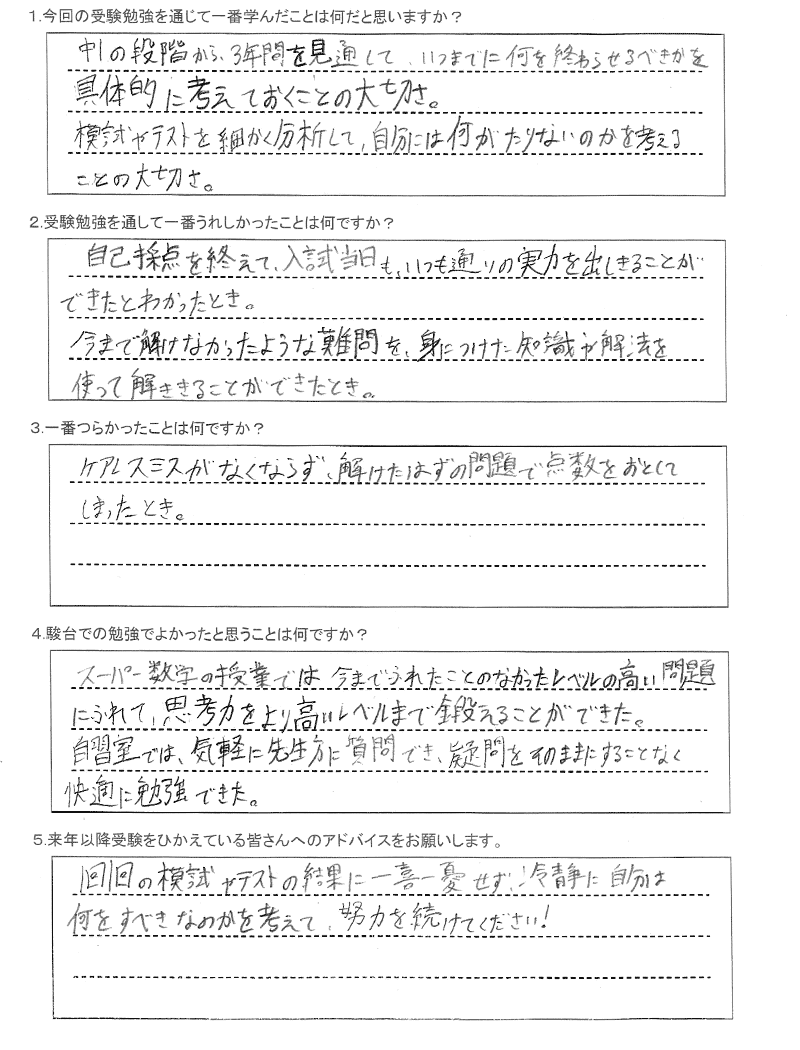 1.今回の受験勉強を通じて一番学んだことは何だと思いますか？
中1の段階から、3年間を見通して、いつまでに何を終わらせるべきかを
具体的に考えておくことの大切さ。
模試やテストを細かく分析して、自分には何がたりないのかを考える
ことの大切さ。
2.受験勉強を通して一番うれしかったことは何ですか？
自己採点を終えて、入試当日も、いつも通りの実力を出しきることが
できたとわかったとき。
今まで解けなかったような難問を、身につけた知識や解法を
使って解ききることができたとき。
3.一番つらかったことは何ですか？
ケアレスミスがなくならず、解けたはずの問題で点数をおとして
しまったとき。
4.駿台での勉強でよかったと思うことは何ですか？
スーパー数学の授業では今までふれたことのなかったレベルの高い問題
にふれて、思考力をより高いレベルまで鍛えることができた。
自習室では、気軽に先生方に質問でき、疑問をそのままにすることなく
快適に勉強できた。
5.来年以降受験をひかえている皆さんへのアドバイスをお願いします。
1回1回の模試やテストの結果に一喜一憂せず、冷静に自分は
何をすべきなのかを考えて、努力を続けてください!